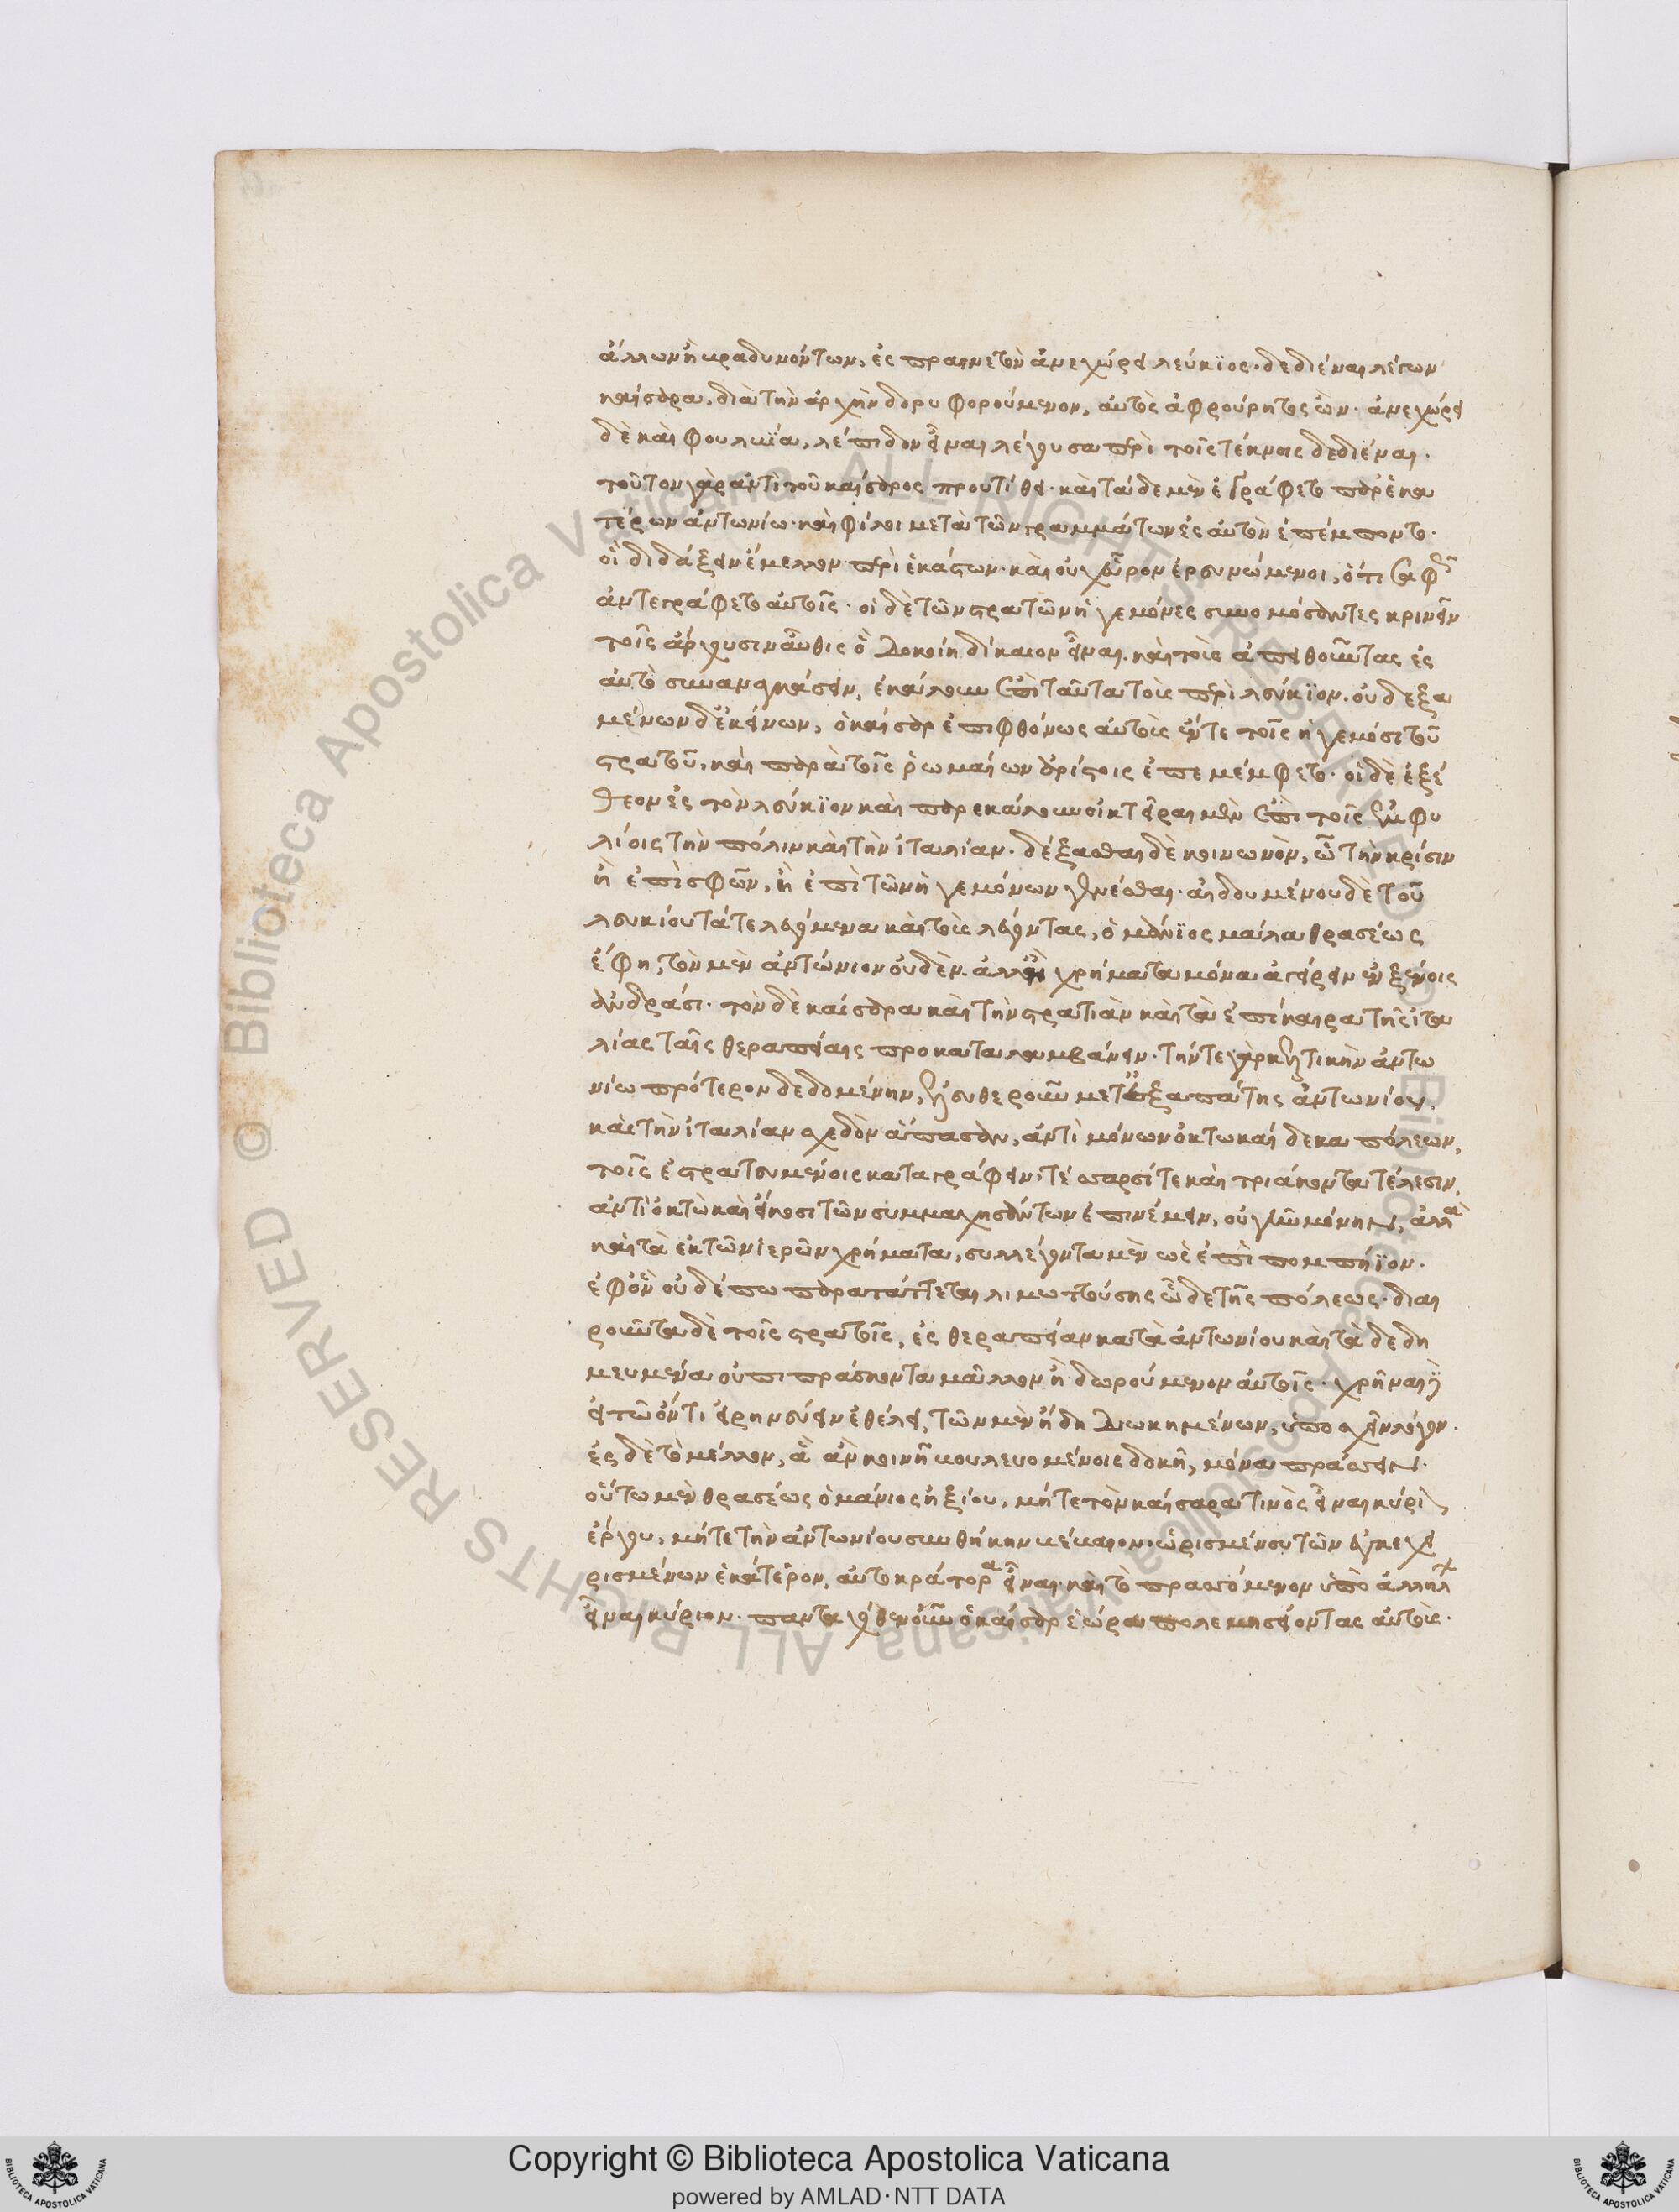 ἄλλων ἢ βραδυνόντων, ἐς πραινετὸν ἀνεχώρει λεύκϊος. δεδιέναι λέγων
καίσαρα, διὰ τὴν ἀρχὴν δορυφορούμενον, αὐτὸς ἀφρούρητος ὤν. ἀνεχώρει
δὲ καὶ φουλβία, λέπιδον εἶναι λέγουσα περὶ τοῖς τέκνοις δεδιέναι.
τοῦτον γὰρ ἀντὶ τοῦ καίσαρος προυτίθει. καὶ τάδε μὲν ἐγράφετο παρ' ἑκα
τέρων ἀντωνίω. καὶ φίλοι μετὰ τῶν γραμμάτων ἐς αὐτὸν ἐπέμποντο.
οἳ διδάξειν ἔμελλον περὶ ἑκάστων. καὶ οὐχ εὗρον ἐρευνώμενοι, ὅτι σαφῶς
ἀντεγράφετο αὐτοῖς. οἱ δὲ τῶν στρατῶν ἡγεμόνες συνομόσαντες κρινεῖν
τοῖς ἄρχουσιν αὖθις ὃ δοκοίη δίκαιον εἶναι. καὶ τοὺς ἀπειθοῦντας ἐς
αὐτὸ συναναγκάσειν, ἐκάλουν ἐπὶ ταῦτα τοὺς περὶ λεύκϊον. οὐ δεξα
μένων δ' ἐκείνων, ὁ καίσαρ ἐπιφθόνως αὐτοὺς ἔν τε τοῖς ἡγεμόσι τοῦ
στρατοῦ, καὶ παρὰ τοῖς ῥωμαίων ἀρίστοις ἐπεμέμφετο. οἱ δὲ ἐξέ
θεον ἐς τὸν λεύκϊον καὶ παρεκάλουν οἰκτεῖραι μὲν ἐπὶ τοῖς ἐμφυ
λίοις τὴν πόλιν καὶ τὴν ἰταλίαν. δέξασθαι δὲ κοινωνὸν, ὦ τὴν κρίσιν
ἢ ἐπὶ σφῶν, ἢ ἐπὶ τῶν ἡγεμόνων γενέσθαι. αἰδουμένου δὲ τοῦ
λευκίου τά τε λεγόμενα καὶ τοὺς λέγοντας, ὁ μάνϊος μάλα θρασέως
ἔφη, τὸν μὲν ἀντώνιον οὐδὲν ἀλλ' ἢ χρήματα μόνα ἀγείρειν ἐν ξένοις
ἀνδράσι. τὸν δὲ καίσαρα καὶ τὴν στρατιὰν καὶ τὰ ἐπίκαιρα τῆς ἰτα
λίας ταῖς θεραπείαις προκαταλαμβάνειν. τήν τε γὰρ κελτικὴν ἀντω
νίω πρότερον δεδομένην, ἐλευθεροῦν μετ' ἐξαπάτης ἀντωνίου.
καὶ τὴν ἰταλίαν σχεδὸν ἅπασαν, ἀντὶ μόνων ὀκτωκαίδεκα πόλεων,
τοῖς ἐστρατευμένοις καταγράφειν. τέσσαρσί τε καὶ τριάκοντα τέλεσιν,
ἀντὶ ὀκτὼ καὶ εἴκοσι τῶν συμμαχησάντων ἐπινέμειν, οὐ γῆν μόνην, ἀλλὰ
καὶ τὰ ἐκ τῶν ἱερῶν χρήματα, συλλέγοντα μὲν ὡς ἐπὶ πομπήϊον.
ἐφ' ὃν οὐδέπω παρατάττεται λιμωττούσης ὧδε τῆς πόλεως. διαι
ροῦντα δὲ τοῖς στρατοῖς, ἐς θεραπείαν κατὰ ἀντωνίου καὶ τὰ δεδη
μευμένα οὐ πιπράσκοντα μᾶλλον ἢ δωρούμενον αὐτοῖς. χρῆναι δ'
εἰ τῶ ὄντι εἰρηνεύειν ἐθέλει, τῶν μὲν ἤδη διωκημένων, ὑποσχεῖν λόγον.
ἐς δὲ τὸ μέλλον, ἃ ἂν κοινῆ βουλευομένοις δοκῆ, μόνα πράσσειν.
οὕτω μὲν θρασέως ὁ μάνιος ἠξίου, μήτε τὸν καίσαρα τινὸς εἶναι κύριον
ἔργου, μήτε τὴν ἀντωνίου συνθήκην βέβαιον. ὡρισμένου τῶν ἐγκεχει
ρισμένων ἑκάτερον, αὐτοκράτορα εἶναι. καὶ τὸ πρασσόμενον ὑπὸ ἀλλήλων
εἶναι κύριον. πανταχόθεν οὖν ὁ καίσαρ ἑώρα πολεμησείοντας αὐτούς.
Copyright © Biblioteca Apostolica Vaticana
powered by AMLAD·NTT DATA